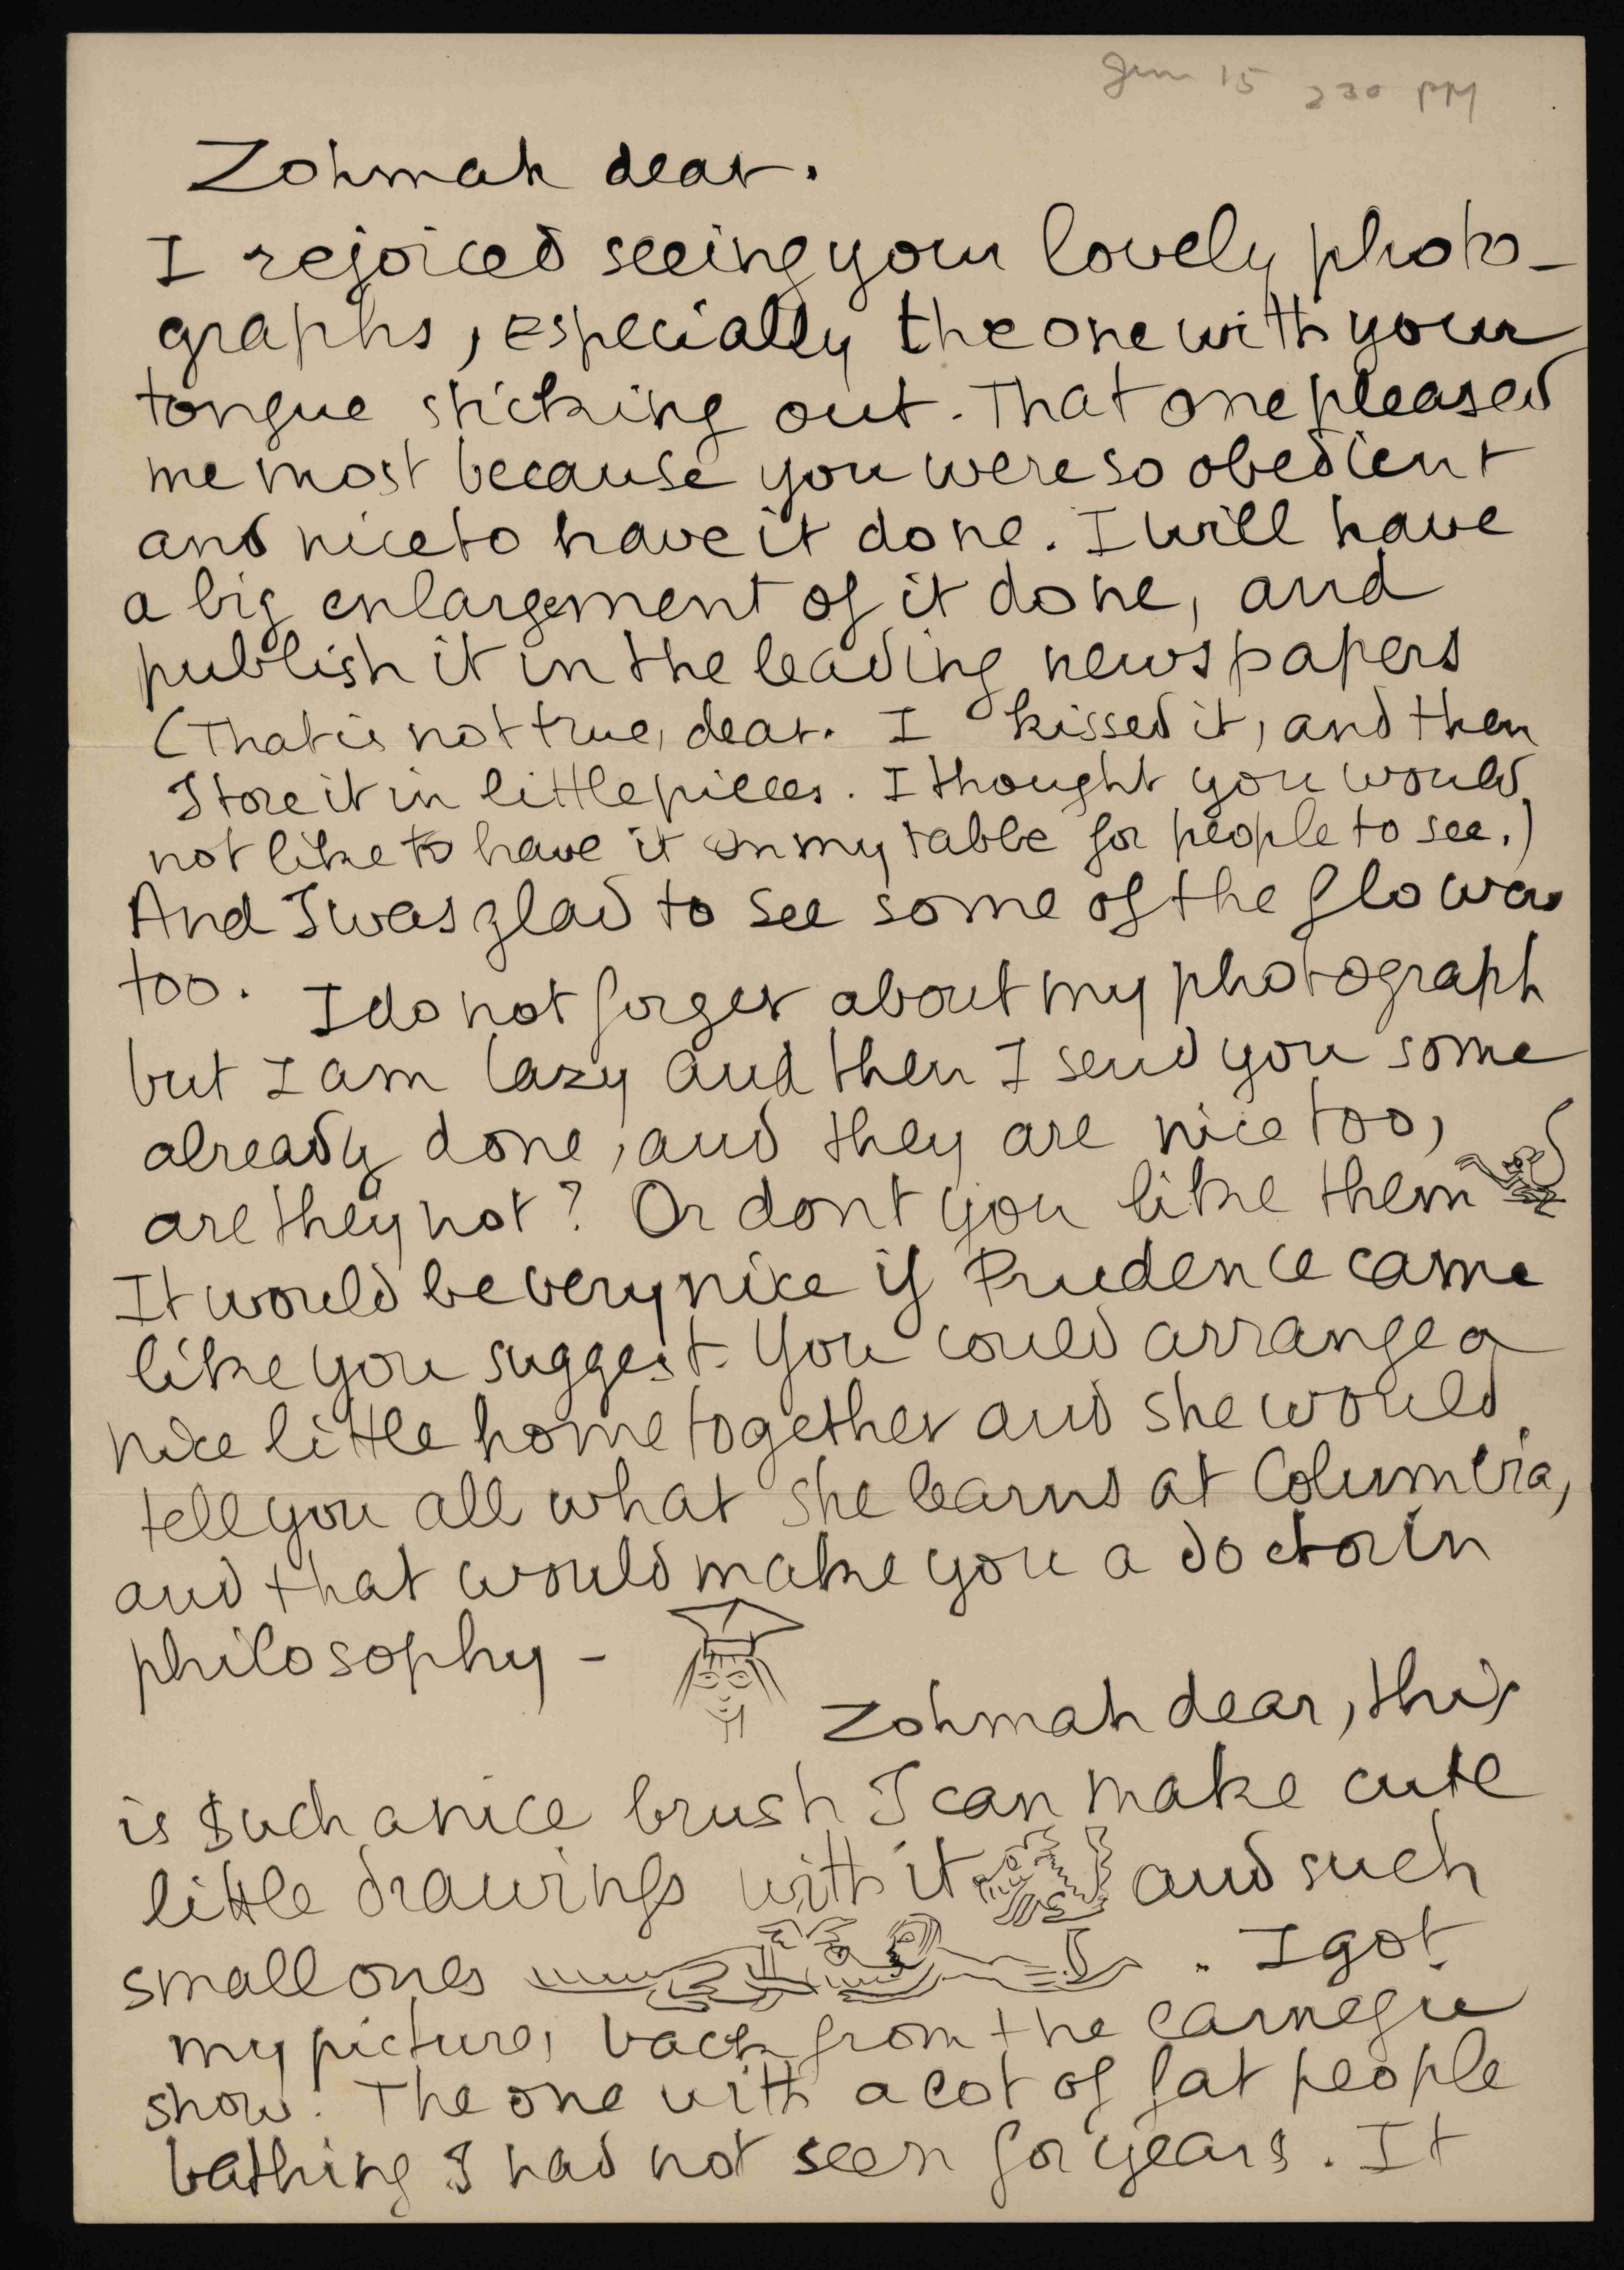 Jun 15 230 PM
Zohmah dear.
I rejoiced seeing your lovely photo-
graphs, especially the one with your
tongue sticking out. That one pleased
me most because you were so obedient
and nice to have it done. I will have
a big enlargement of it done, and
publish it in the leading newspapers
(That is not true, dear. I kissed it, and then
I tore it in little pieces. I thought you would
not like to have it on my table for people to see.)
And I was glad to see some of the flowers
too. I do not forget about my photograph
but I am lazy and then I send you some
already done, and they are nice too,
are they not? Or dont you like them
It would be very nice if Prudence came
like you suggest. You could arrange a
nice little home together and she would
tell you all what she learns at Columbia,
and that would make you a doctor in
philosophy -
Zohmah dear, this
is such a nice brush I can make cute
little drawings with it and such
small ones . I got
my pictures back from the Carnegie
show. The one with a lot of fat people
bathing I had not seen for years. It